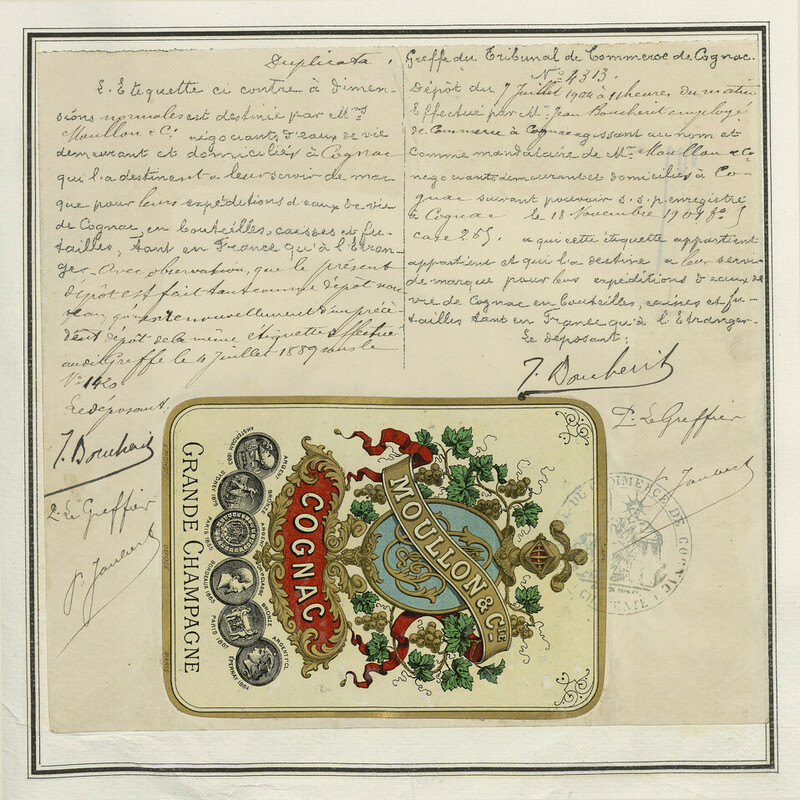 Duplicata.
L'Etiquette ci contre à dimen-
sions normales est destinée par Mrs
Moullon & Cie négociants d'eaux de vie
demeurant et domiciliés à Cognac
qui l'a destinent à leur servir de mar-
que pour leurs expéditions d'eaux de vie
de Cognac, en bouteilles, caisses et fu-
tailles, tant en France qu'à l'Etran-
ger. Avec observation, que le présent
dépôt est fait tant comme dépôt nou-
veau, que renouvellement d'un précé-
dent dépôt de la même étiquette effectué
audit Greffe le 4 Juillet 1889 sous le
No 1420
Le déposant.
J. Boucherit
P. Le Greffier
P. Jaubert
Greffe du Tribunal de Commerce de Cognac.
No 4313.
Dépôt du 7 Juillet 1904 à 11 heures du matin
Effectué par M. Jean Boucherit employé
de Commerce à Cognac agissant au nom et
comme mandataire de Mrs Moullon & Co
négociants demeurant et domiciliés à Co-
gnac suivant pouvoir s.s.p. enregistré
à Cognac le 18 Novembre 1901 fo 5
case 265. a qui cette étiquette appartient
appartient et qui l'a destine a leur servir
de marque pour leurs expéditions d'eaux de
vie de Cognac en bouteilles, caisses et fu-
tailles tant en France qu'à l'Etranger.
Le déposant:
J. Boucherit
P. Le Greffier
P. Jaubert
DU COMMERCE DE COGNAC
CHARENTE
MOULLON & CIE
COGNAC
ARGENT
BRONZE
ARGENT
BRONZE
AMSTERDAM 1883
PARIS 1855
BORDEAUX 1865
PARIS 1867
EPERNAY 1864
GRANDE CHAMPAGNE